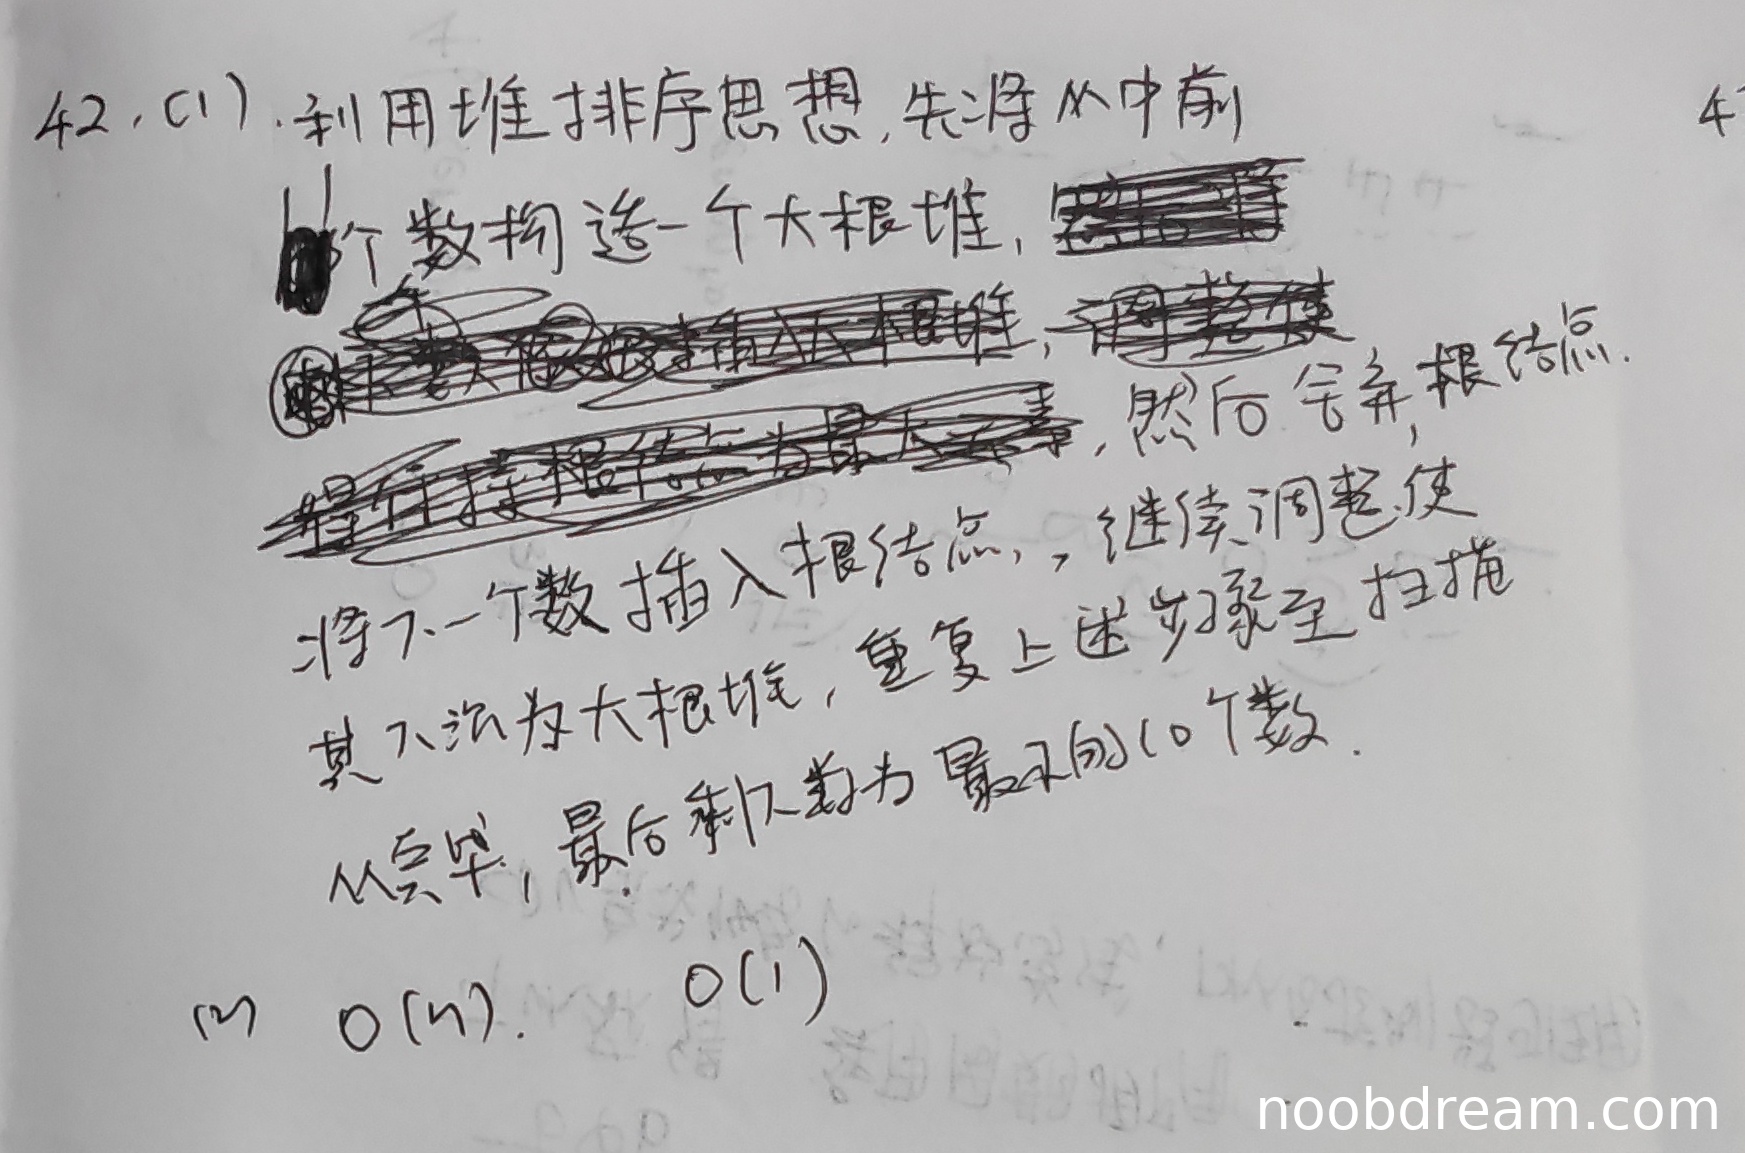 42.(1).利用堆排序思想,先将从中前
11个数构造一个大根堆,
,然后舍弃根结点.
将下一个数插入根结点,,继续调整使
其下沉为大根堆,重复上述步骤至扫描
从员毕,最后剩下数为最小的10个数.
(2) O(n). O(1)
noobdream.com